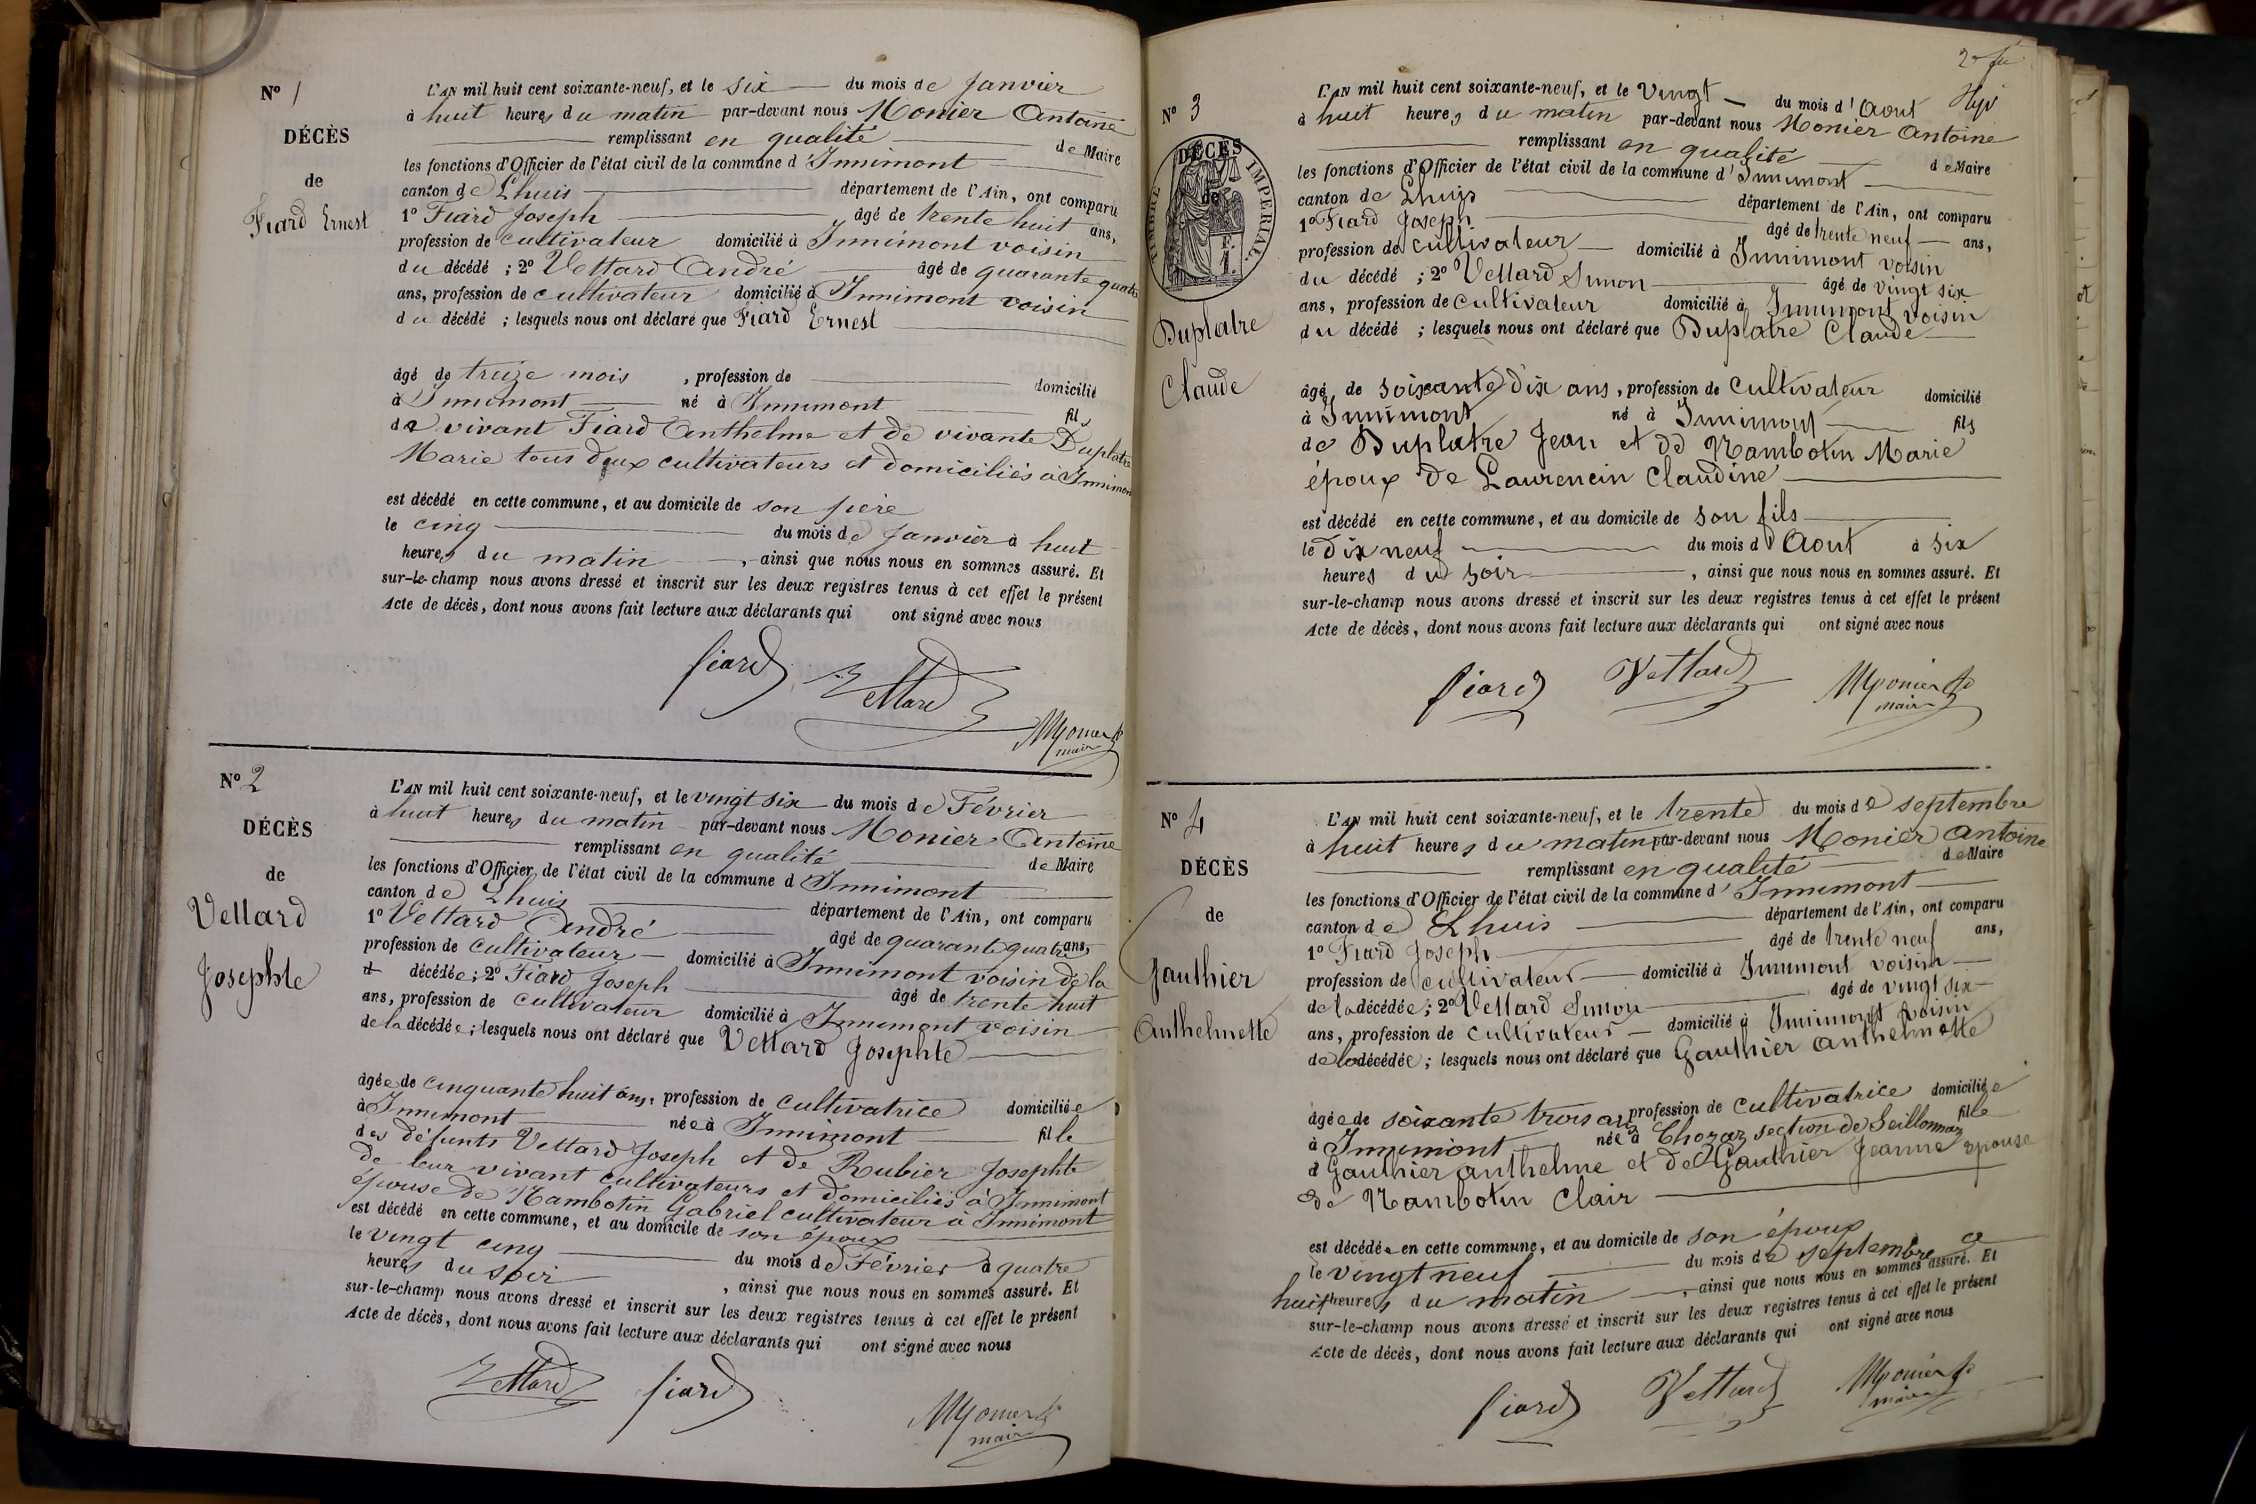 N° 1
DÉCÈS
de
Fiard Ernest
L'AN mil huit cent soixante-neuf, et le six du mois de Janvier
à huit heures du matin par-devant nous Monier Antoine
remplissant en qualité de Maire
les fonctions d'Officier de l'état civil de la commune d'Innimont
canton de Lhuis département de l'Ain, ont comparu
1° Fiard Joseph âgé de trente huit ans,
profession de cultivateur domicilié à Innimont voisin
du décédé ; 2° Vettard André âgé de quarante quatre
ans, profession de cultivateur domicilié à Innimont voisin
du décédé ; lesquels nous ont déclaré que Fiard Ernest
âgé de treize mois , profession de domicilié
à Innimont né à Innimont fils
de vivant Fiard Anthelme et de vivante Duplatre
Marie tous deux cultivateurs et domiciliés à Innimont
est décédé en cette commune, et au domicile de son père
le cinq du mois de Janvier à huit
heures du matin , ainsi que nous nous en sommes assuré. Et
sur-le-champ nous avons dressé et inscrit sur les deux registres tenus à cet effet le présent
Acte de décès, dont nous avons fait lecture aux déclarants qui ont signé avec nous
fiard Vettard
Monier
maire
N° 2
DÉCÈS
de
Vettard
Josephte
L'AN mil huit cent soixante-neuf, et le vingt six du mois de Février
à huit heures du matin par-devant nous Monier Antoine
remplissant en qualité de Maire
les fonctions d'Officier de l'état civil de la commune d Innimont
canton de Lhuis département de l'Ain, ont comparu
1° Vettard André âgé de quarante quatre ans,
profession de cultivateur domicilié à Innimont voisin de la
décédée ; 2° Fiard Joseph âgé de trente huit
ans, profession de cultivateur domicilié à Innimont voisin
de la décédée ; lesquels nous ont déclaré que Vettard Josephte
âgée de cinquante huit ans, profession de cultivatrice domiciliée
à Innimont née à Innimont fille
des défunts Vettard Joseph et de Rubier Josephte
de leur vivant cultivateurs et domiciliés à Innimont
épouse de Nambotin Gabriel cultivateur à Innimont
est décédé en cette commune, et au domicile de son époux
le vingt cinq du mois de Février à quatre
heures du soir , ainsi que nous nous en sommes assuré. Et
sur-le-champ nous avons dressé et inscrit sur les deux registres tenus à cet effet le présent
Acte de décès, dont nous avons fait lecture aux déclarants qui ont signé avec nous
Vettard fiard
Monier
maire
N° 3
DÉCÈS
de
TIMBRE IMPERIAL
1F
Duplatre
Claude
L'AN mil huit cent soixante-neuf, et le vingt du mois d'Aout
à huit heures du matin par-devant nous Monier Antoine
remplissant en qualité de Maire
les fonctions d'Officier de l'état civil de la commune d'Innimont
canton de Lhuis département de l'Ain, ont comparu
1° Fiard Joseph âgé de trente neuf ans,
profession de cultivateur domicilié à Innimont voisin
du décédé ; 2° Vettard Simon âgé de vingt six
ans, profession de cultivateur domicilié à Innimont voisin
du décédé ; lesquels nous ont déclaré que Duplatre Claude
âgé de soixante dix ans, profession de cultivateur domicilié
à Innimont né à Innimont fils
de Duplatre Jean et de Nambotin Marie
époux de Laurencin Claudine
est décédé en cette commune, et au domicile de son fils
le dix neuf du mois d Aout à six
heures du soir , ainsi que nous nous en sommes assuré. Et
sur-le-champ nous avons dressé et inscrit sur les deux registres tenus à cet effet le présent
Acte de décès, dont nous avons fait lecture aux déclarants qui ont signé avec nous
fiard Vettard Monier
maire
N° 4
DÉCÈS
de
Gauthier
Anthelmette
L'AN mil huit cent soixante-neuf, et le trente du mois de septembre
à huit heures du matin par-devant nous Monier Antoine
remplissant en qualité de Maire
les fonctions d'Officier de l'état civil de la commune d'Innimont
canton de Lhuis département de l'Ain, ont comparu
1° Fiard Joseph âgé de trente neuf ans,
profession de cultivateur domicilié à Innimont voisin
de la décédée ; 2° Vettard Simon âgé de vingt six
ans, profession de cultivateur domicilié à Innimont voisin
de la décédée ; lesquels nous ont déclaré que Gauthier Anthelmette
âgée de soixante trois ans profession de cultivatrice domiciliée
à Innimont née à Chozaz section de Seillonnaz fille
d Gauthier anthelme et de Gauthier Jeanne epouse
de Nambotin Clair
est décédée en cette commune, et au domicile de son époux
le vingt neuf du mois de septembre a
huit heures du matin , ainsi que nous nous en sommes assuré. Et
sur-le-champ nous avons dressé et inscrit sur les deux registres tenus à cet effet le présent
Acte de décès, dont nous avons fait lecture aux déclarants qui ont signé avec nous
fiard Vettard Monier
maire